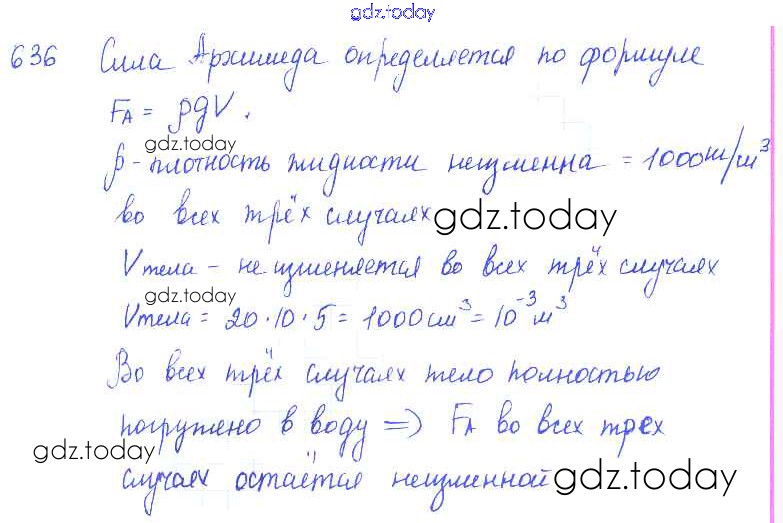 gdz.today
636 Сила Архимеда определяется по формуле
FA = ρgV.
gdz.today
ρ - плотность жидкости неизменна = 1000 кг/м³
во всех трёх случаях gdz.today
Vтела - не изменяется во всех трёх случаях
gdz.today
Vтела = 20·10·5 = 1000 см³ = 10⁻³ м³
Во всех трёх случаях тело полностью
погружено в воду => FA во всех трех
gdz.today
случаях остаётся неизменной gdz.today